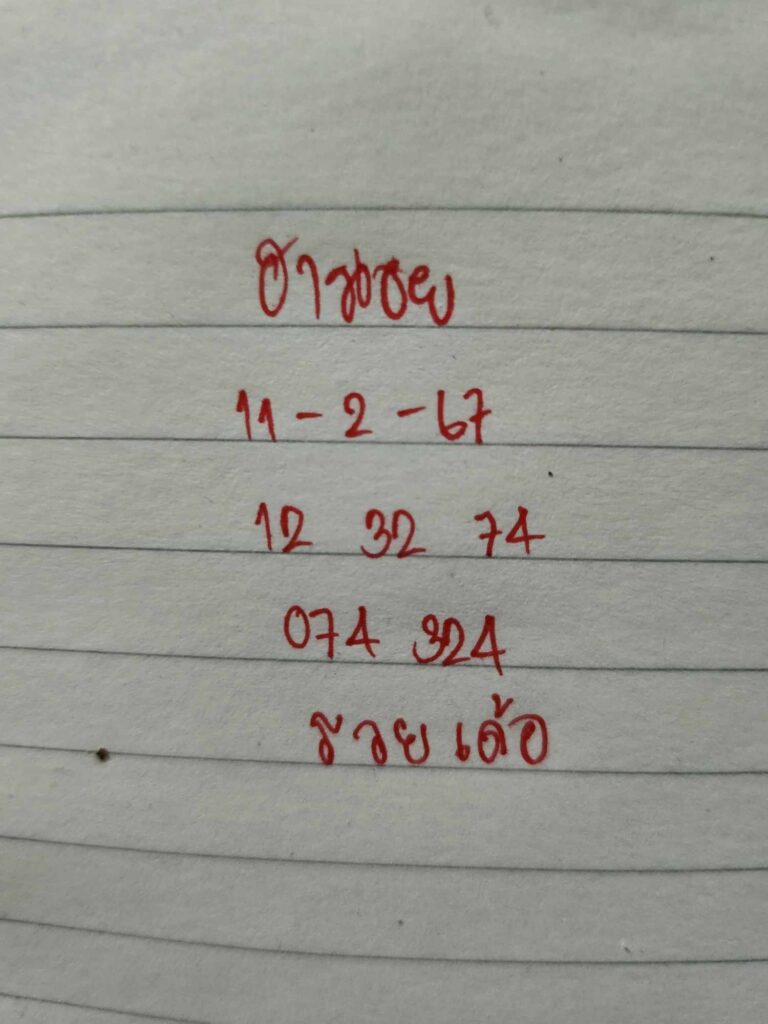 ฮานอย
11 - 2 - 67
12 32 74
074 324
รวย เด้อ